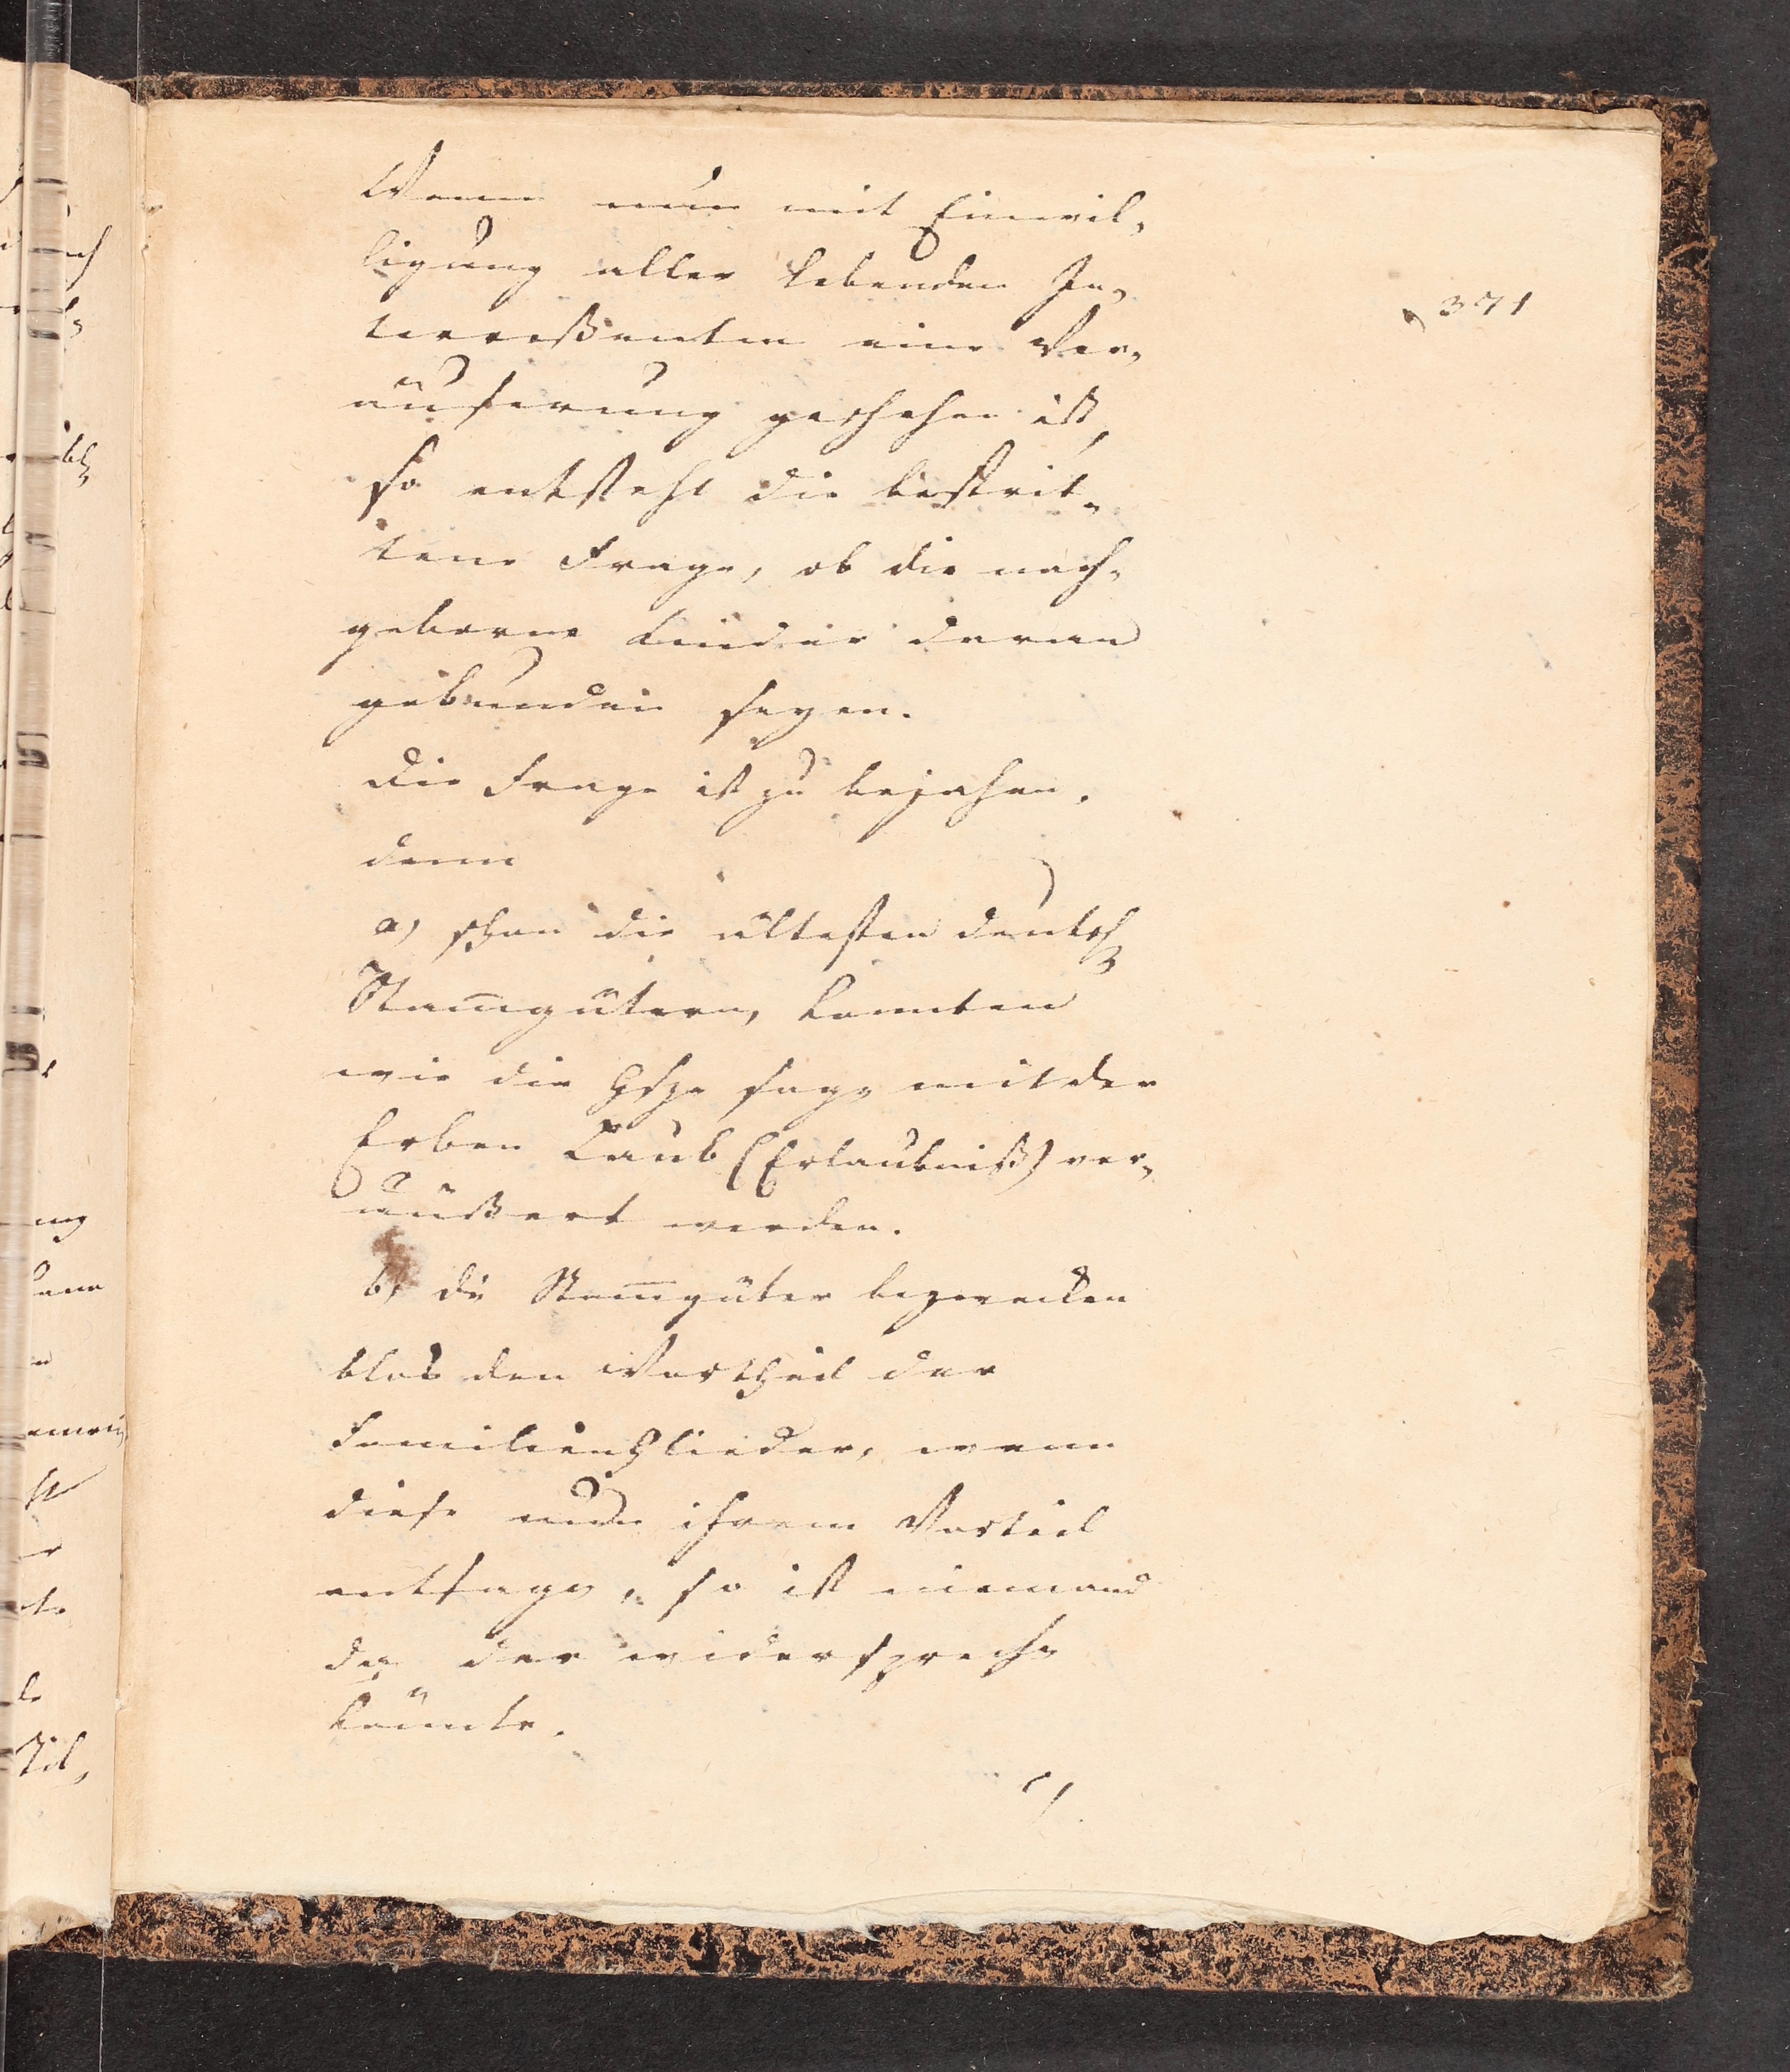 Wenn nun mit Einwil„
ligung aller lebenden In„
terreßenten eine Ver„
äuserung geschehen ist,
so entsteht die bestrit„
tene Frage, ob die nach„
geborne Kinder daran
gebunden seyen.
Die Frage ist zu bejahen,
denn
a) schon die ältesten deutsch
Stam̅gütern, konnten
wie die Gsze sag mit der
Erben Laub (Erlaubniß) ver„
äußert werden.
b) die Stam̅güter bezwecken
blos den Vortheil der
Familienglieder, wenn
diese nun ihrem Vorteil
entsagen, so ist niemand
da der widersprech
könnte.
c)
371